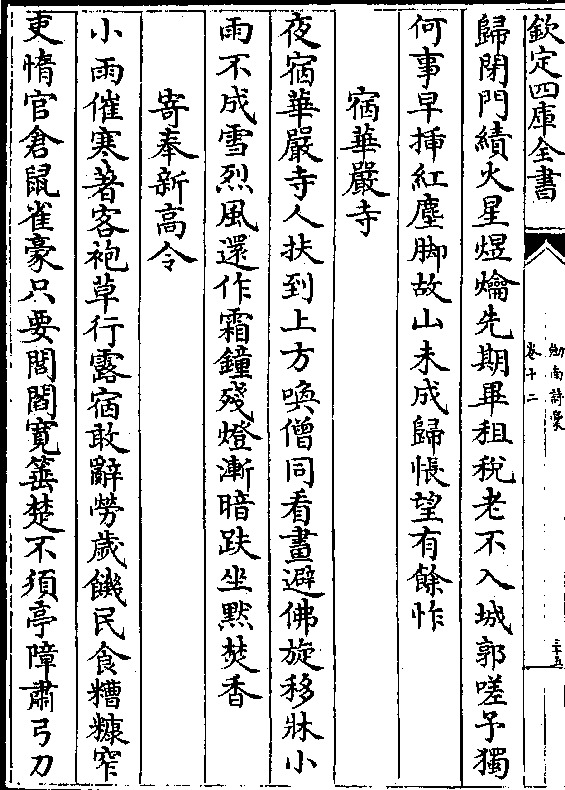 欽定四庫全書
劍南詩稾
卷十二
三十五
歸閉門績火星煜爚先期畢租税老不入城郭嗟予獨
何事早插紅塵脚故山未成歸悵望有餘怍
宿華嚴寺
夜宿華嚴寺人扶到上方喚僧同看畫避佛旋移牀小
雨不成雪烈風還作霜鐘殘燈漸暗趺坐黙焚香
寄奉新高令
小雨催寒著客袍草行露宿敢辭勞歳饑民食糟糠窄
吏惰官倉鼠雀豪只要閭閻寛箠楚不須亭障肅弓刀